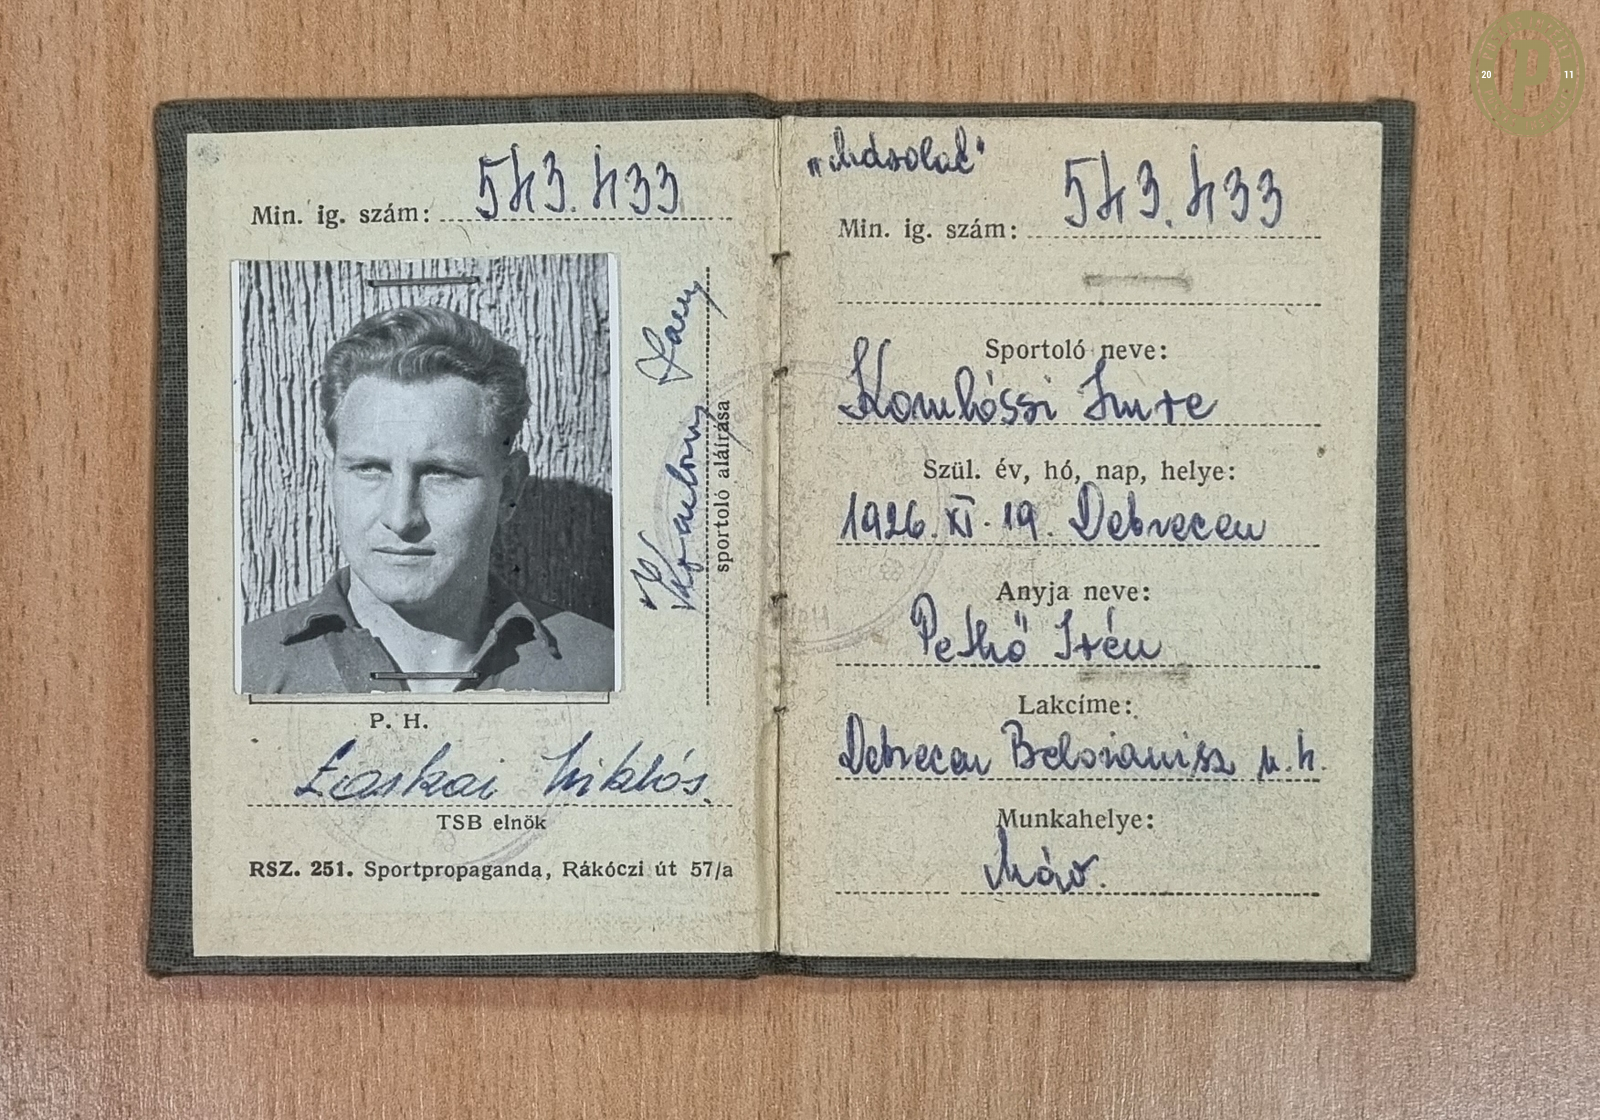 Min. ig. szám: 543.433
sportoló aláírása
P. H.
Laskai Miklós
TSB elnök
RSZ. 251. Sportpropaganda, Rákóczi út 57/a
„Másolat"
Min. ig. szám: 543.433
Sportoló neve:
Komlóssi Imre
Szül. év, hó, nap, helye:
1926. XI. 19. Debrecen
Anyja neve:
Pethő Irén
Lakcíme:
Debrecen Beloianisz u. h.
Munkahelye:
Máv.
P
20 11